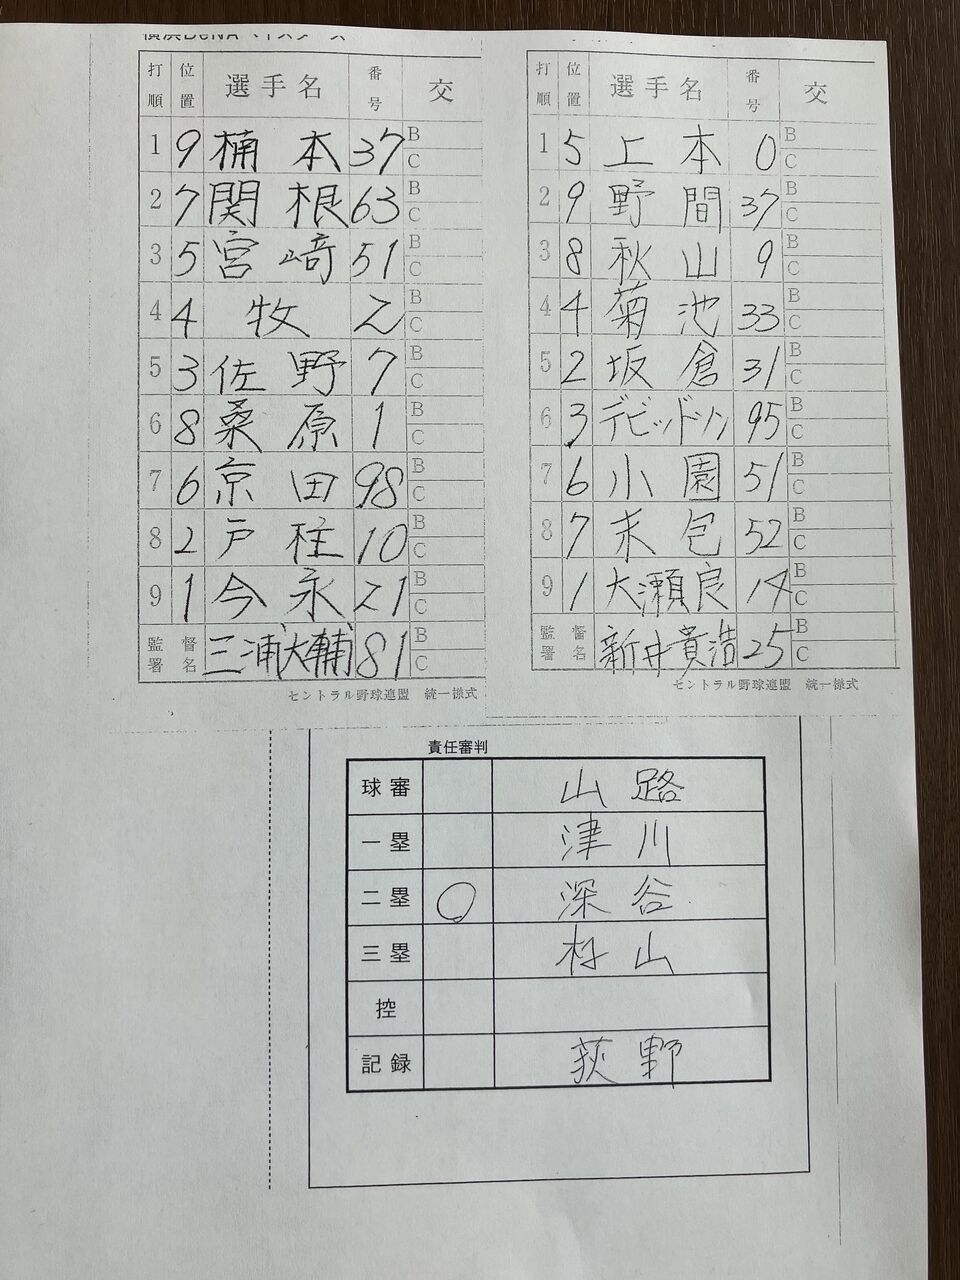 横浜DeNAベイスターズ
打順 位置 選手名 番号 交
1 9 楠本 37 B C
2 7 関根 63 B C
3 5 宮﨑 51 B C
4 4 牧 2 B C
5 3 佐野 7 B C
6 8 桑原 1 B C
7 6 京田 98 B C
8 2 戸柱 10 B C
9 1 今永 21 B C
監督署名 三浦大輔 81 B C
セントラル野球連盟 統一様式
打順 位置 選手名 番号 交
1 5 上本 0 B C
2 9 野間 37 B C
3 8 秋山 9 B C
4 4 菊池 33 B C
5 2 坂倉 31 B C
6 3 デビッドソン 95 B C
7 6 小園 51 B C
8 7 末包 52 B C
9 1 大瀬良 14 B C
監督署名 新井貴浩 25 B C
セントラル野球連盟 統一様式
責任審判
球審 山路
一塁 津川
二塁 ○ 深谷
三塁 村山
控
記録 荻野